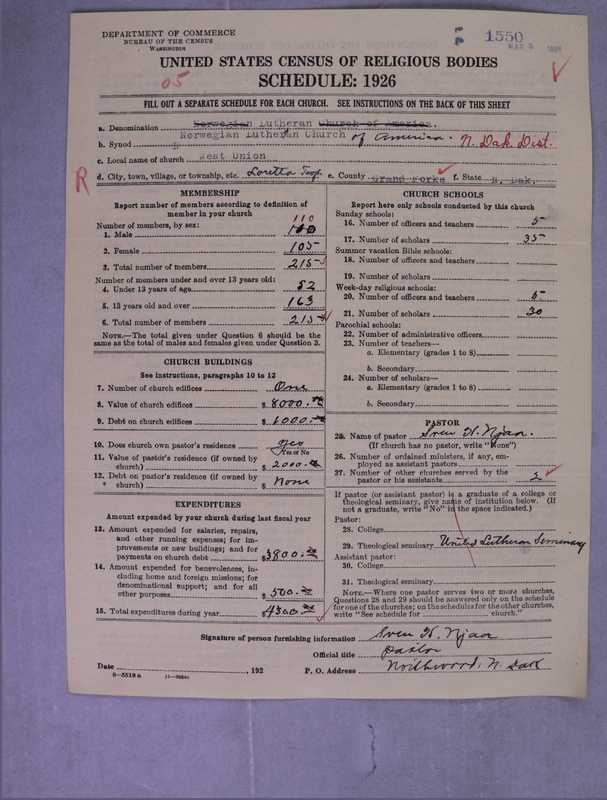 DEPARTMENT OF COMMERCE
BUREAU OF THE CENSUS
WASHINGTON
1550
MAR 9 1927
UNITED STATES CENSUS OF RELIGIOUS BODIES
05
SCHEDULE: 1926
FILL OUT A SEPARATE SCHEDULE FOR EACH CHURCH. SEE INSTRUCTIONS ON THE BACK OF THIS SHEET
a. Denomination Norwegian Lutheran Church of America.
b. Synod Norwegian Lutheran Church of America. N. Dak. Dist.
c. Local name of church West Union
R
d. City, town, village, or township, etc. Loretta Twp. e. County Grand Forks f. State N. Dak.
MEMBERSHIP
Report number of members according to definition of member in your church
Number of members, by sex:
110
1. Male
2. Female 105
3. Total number of members 215
Number of members under and over 13 years old:
4. Under 13 years of age 52
5. 13 years old and over 163
6. Total number of members 215
NOTE.—The total given under Question 6 should be the same as the total of males and females given under Question 3.
CHURCH BUILDINGS
See instructions, paragraphs 10 to 12
7. Number of church edifices One
8. Value of church edifices $ 8000.
9. Debt on church edifices $ 1000.
10. Does church own pastor's residence yes
Yes or No
11. Value of pastor's residence (if owned by church) $ 2000.
12. Debt on pastor's residence (if owned by church) $ None
EXPENDITURES
Amount expended by your church during last fiscal year
13. Amount expended for salaries, repairs, and other running expenses; for improvements or new buildings; and for payments on church debt $ 3800.
14. Amount expended for benevolences, including home and foreign missions; for denominational support; and for all other purposes $ 500.
15. Total expenditures during year $ 4300.
CHURCH SCHOOLS
Report here only schools conducted by this church
Sunday schools:
16. Number of officers and teachers 5
17. Number of scholars 35
Summer vacation Bible schools:
18. Number of officers and teachers
19. Number of scholars
Week-day religious schools:
20. Number of officers and teachers 5
21. Number of scholars 30
Parochial schools:
22. Number of administrative officers
23. Number of teachers—
a. Elementary (grades 1 to 8)
b. Secondary
24. Number of scholars—
a. Elementary (grades 1 to 8)
b. Secondary
PASTOR
25. Name of pastor Sven H. Njaa.
(If church has no pastor, write "None")
26. Number of ordained ministers, if any, employed as assistant pastors
27. Number of other churches served by the pastor or his assistants 2
If pastor (or assistant pastor) is a graduate of a college or theological seminary, give name of institution below. (If not a graduate, write "No" in the space indicated.)
Pastor:
28. College
29. Theological seminary United Lutheran Seminary
Assistant pastor:
30. College
31. Theological seminary
NOTE.—Where one pastor serves two or more churches, Questions 28 and 29 should be answered only on the schedule for one of the churches; on the schedules for the other churches, write "See schedule for church."
Signature of person furnishing information Sven H. Njaa
Official title Pastor
Date , 192 P. O. Address Northwood, N. Dak
8—5518a